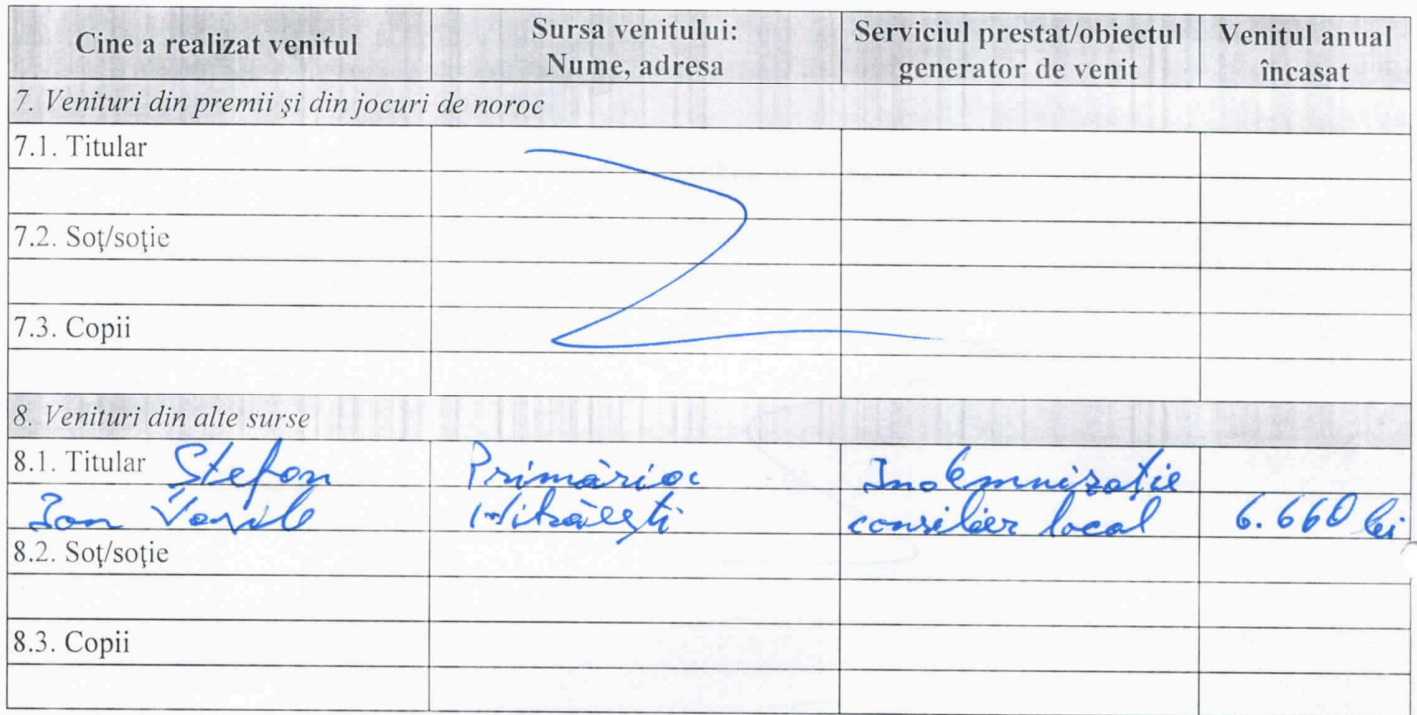 Cine a realizat venitul
Sursa venitului:
Nume, adresa
Serviciul prestat/obiectul
generator de venit
Venitul anual
încasat
7. Venituri din premii și din jocuri de noroc
7.1. Titular
7.2. Soț/soție
7.3. Copii
8. Venituri din alte surse
8.1. Titular Stefan
Ion Vasile
Primăria
Indemnizatie
consilier local
6.660 lei
8.2. Soț/soție
8.3. Copii